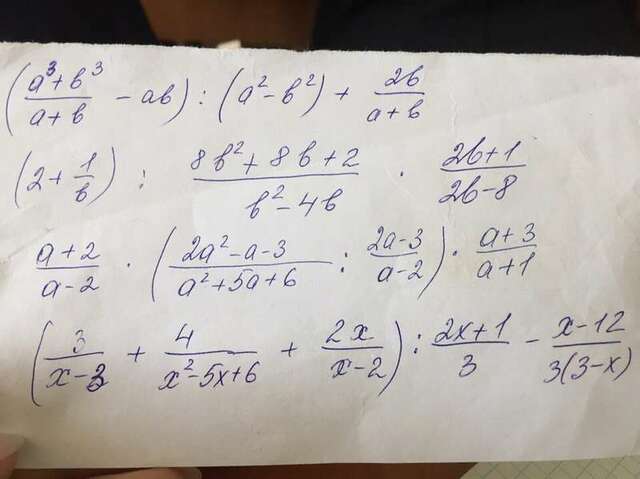 (a³+b³/a+b - ab) : (a²-b²) + 2b/a+b
(2 + 1/b) : 8b²+8b+2/b²-4b · 2b+1/2b-8
a+2/a-2 · (2a²-a-3/a²+5a+6 : 2a-3/a-2) · a+3/a+1
(3/x-3 + 4/x²-5x+6 + 2x/x-2) : 2x+1/3 - x-12/3(3-x)